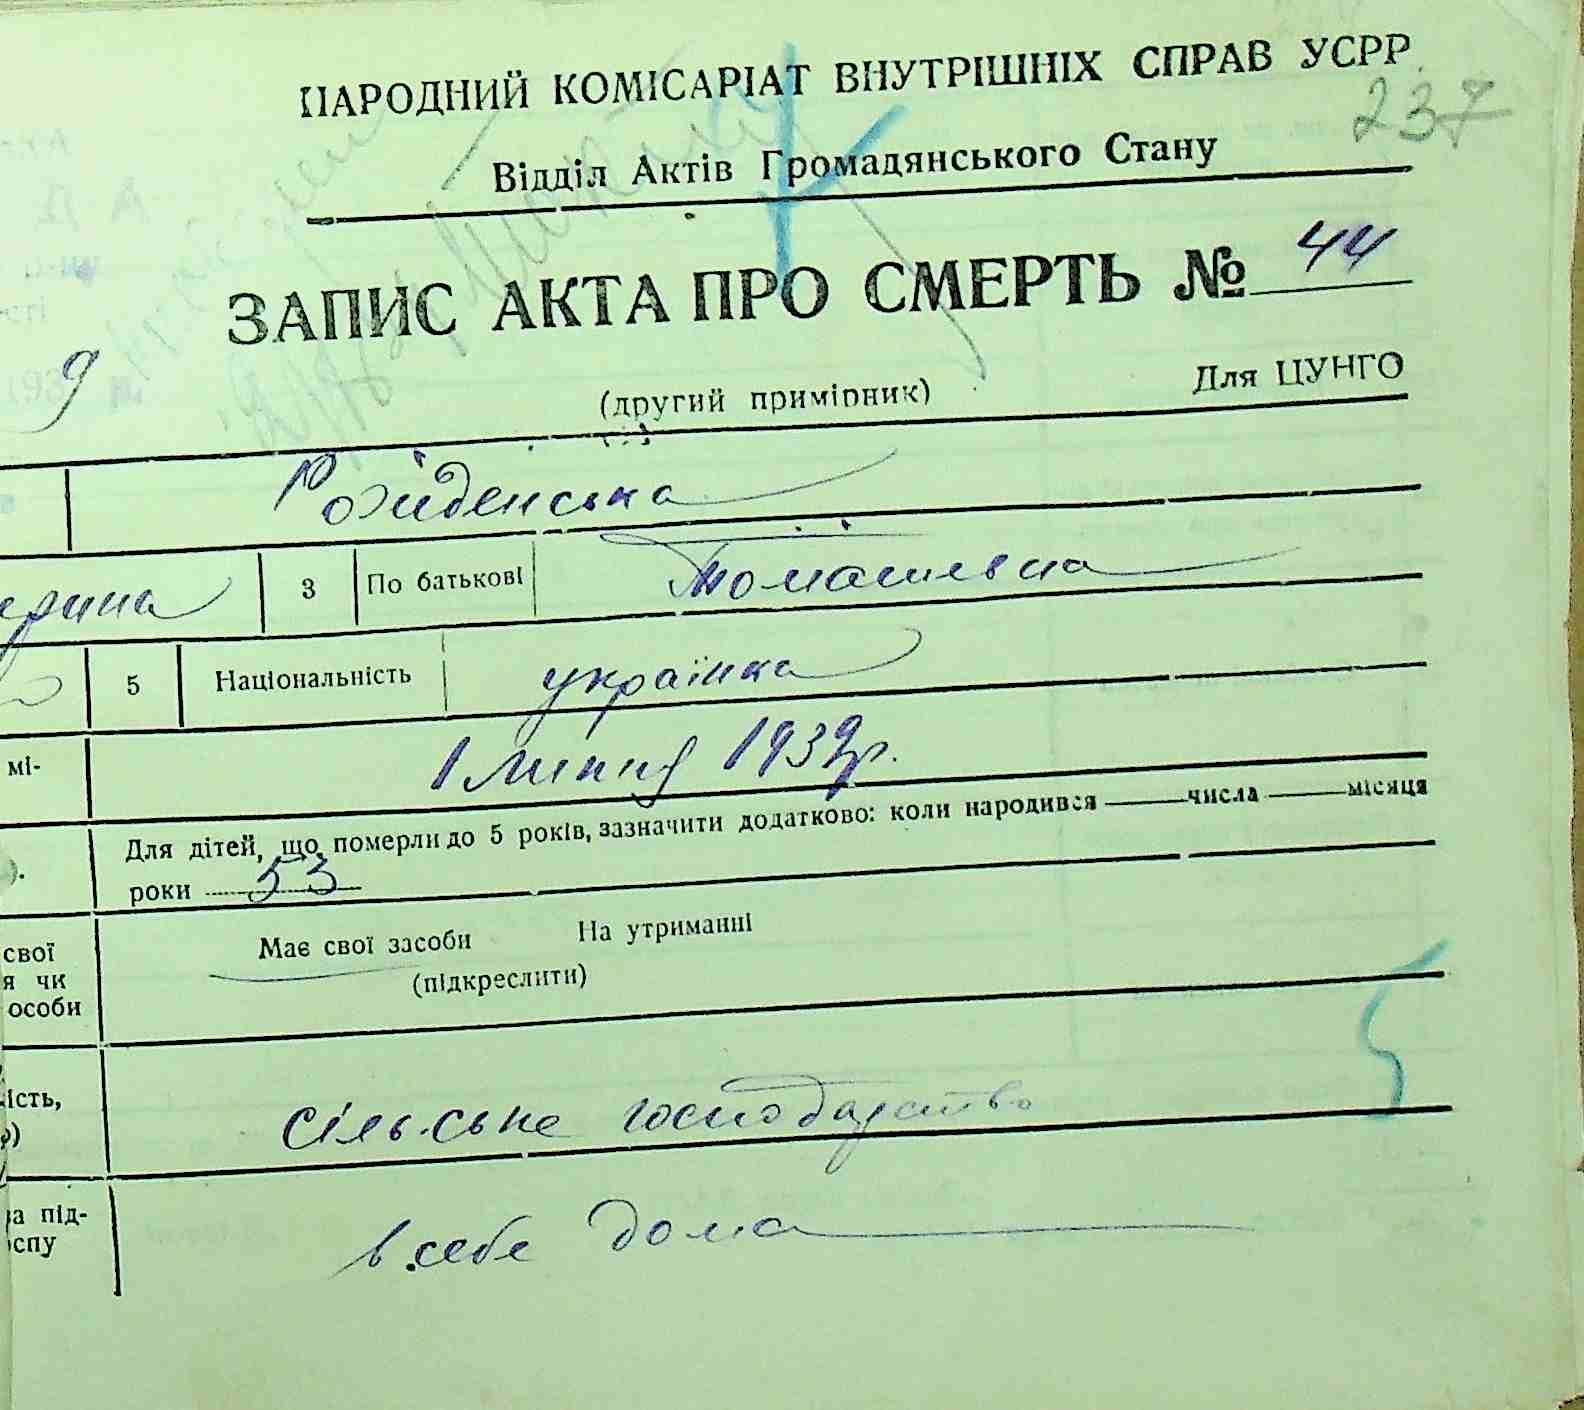 НАРОДНИЙ КОМІСАРІАТ ВНУТРІШНІХ СПРАВ УСРР
237
Відділ Актів Громадянського Стану
ЗАПИС АКТА ПРО СМЕРТЬ № 44
193 9 р.
(другий примірник) Для ЦУНГО
ерина 3 По батькові Томашевна
5 Національність українка
мі- 1 липня 1939р.
Для дітей, що померли до 5 років, зазначити додатково: коли народився числа місяця
). роки 53
свої Має свої засоби На утриманні
я чи (підкреслити)
особи
ість, сільське господарство
)
ва під- в себе дома
оспу